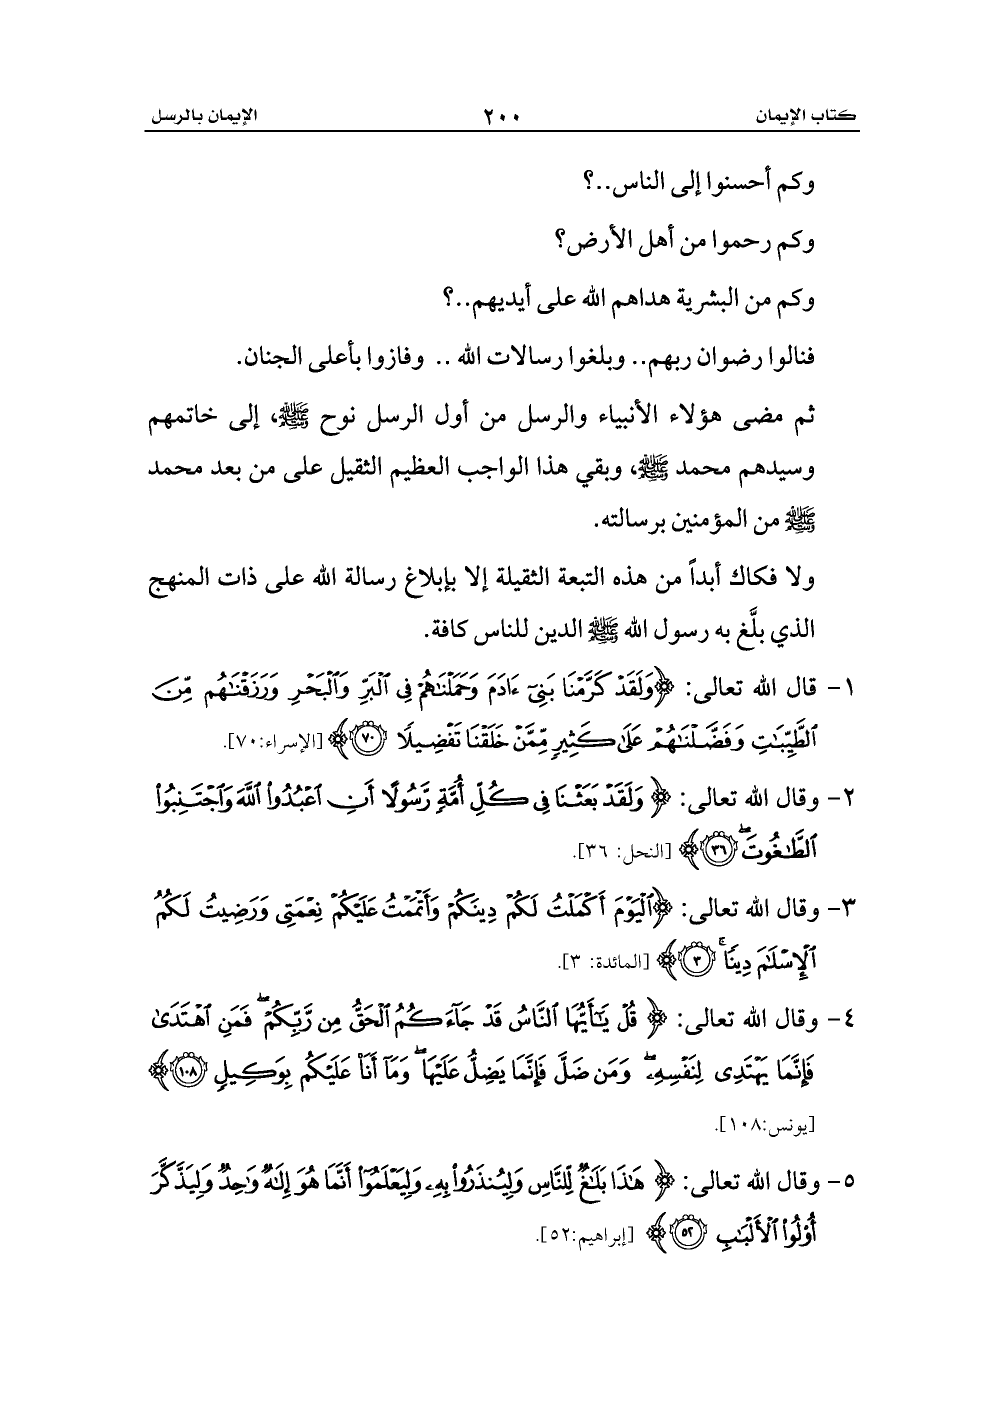 كتاب الإيمان ٢٠٠ الإيمان بالرسل
وكم أحسنوا إلى الناس..؟
وكم رحموا من أهل الأرض؟
وكم من البشرية هداهم الله على أيديهم..؟
فنالوا رضوان ربهم.. وبلغوا رسالات الله .. وفازوا بأعلى الجنان.
ثم مضى هؤلاء الأنبياء والرسل من أول الرسل نوح ﷺ، إلى خاتمهم
وسيدهم محمد ﷺ، وبقي هذا الواجب العظيم الثقيل على من بعد محمد
ﷺ من المؤمنين برسالته.
ولا فكاك أبداً من هذه التبعة الثقيلة إلا بإبلاغ رسالة الله على ذات المنهج
الذي بلَّغ به رسول الله ﷺ الدين للناس كافة.
١- قال الله تعالى: ﴿وَلَقَدْ كَرَّمْنَا بَنِىٓ ءَادَمَ وَحَمَلْنَٰهُمْ فِى ٱلْبَرِّ وَٱلْبَحْرِ وَرَزَقْنَٰهُم مِّنَ
ٱلطَّيِّبَٰتِ وَفَضَّلْنَٰهُمْ عَلَىٰ كَثِيرٍ مِّمَّنْ خَلَقْنَا تَفْضِيلًا ٧٠﴾ [الإسراء:٧٠].
٢- وقال الله تعالى: ﴿ وَلَقَدْ بَعَثْنَا فِى كُلِّ أُمَّةٍ رَّسُولًا أَنِ ٱعْبُدُوا۟ ٱللَّهَ وَٱجْتَنِبُوا۟
ٱلطَّٰغُوتَ ۖ ٣٦﴾ [النحل: ٣٦].
٣- وقال الله تعالى: ﴿ٱلْيَوْمَ أَكْمَلْتُ لَكُمْ دِينَكُمْ وَأَتْمَمْتُ عَلَيْكُمْ نِعْمَتِى وَرَضِيتُ لَكُمُ
ٱلْإِسْلَٰمَ دِينًا ۚ ٣﴾ [المائدة: ٣].
٤- وقال الله تعالى: ﴿ قُلْ يَٰٓأَيُّهَا ٱلنَّاسُ قَدْ جَآءَكُمُ ٱلْحَقُّ مِن رَّبِّكُمْ ۖ فَمَنِ ٱهْتَدَىٰ
فَإِنَّمَا يَهْتَدِى لِنَفْسِهِۦ ۖ وَمَن ضَلَّ فَإِنَّمَا يَضِلُّ عَلَيْهَا ۖ وَمَآ أَنَا۠ عَلَيْكُم بِوَكِيلٍ ١٠٨﴾
[يونس:١٠٨].
٥- وقال الله تعالى: ﴿ هَٰذَا بَلَٰغٌ لِّلنَّاسِ وَلِيُنذَرُوا۟ بِهِۦ وَلِيَعْلَمُوٓا۟ أَنَّمَا هُوَ إِلَٰهٌ وَٰحِدٌ وَلِيَذَّكَّرَ
أُو۟لُوا۟ ٱلْأَلْبَٰبِ ٥٢﴾ [إبراهيم:٥٢].